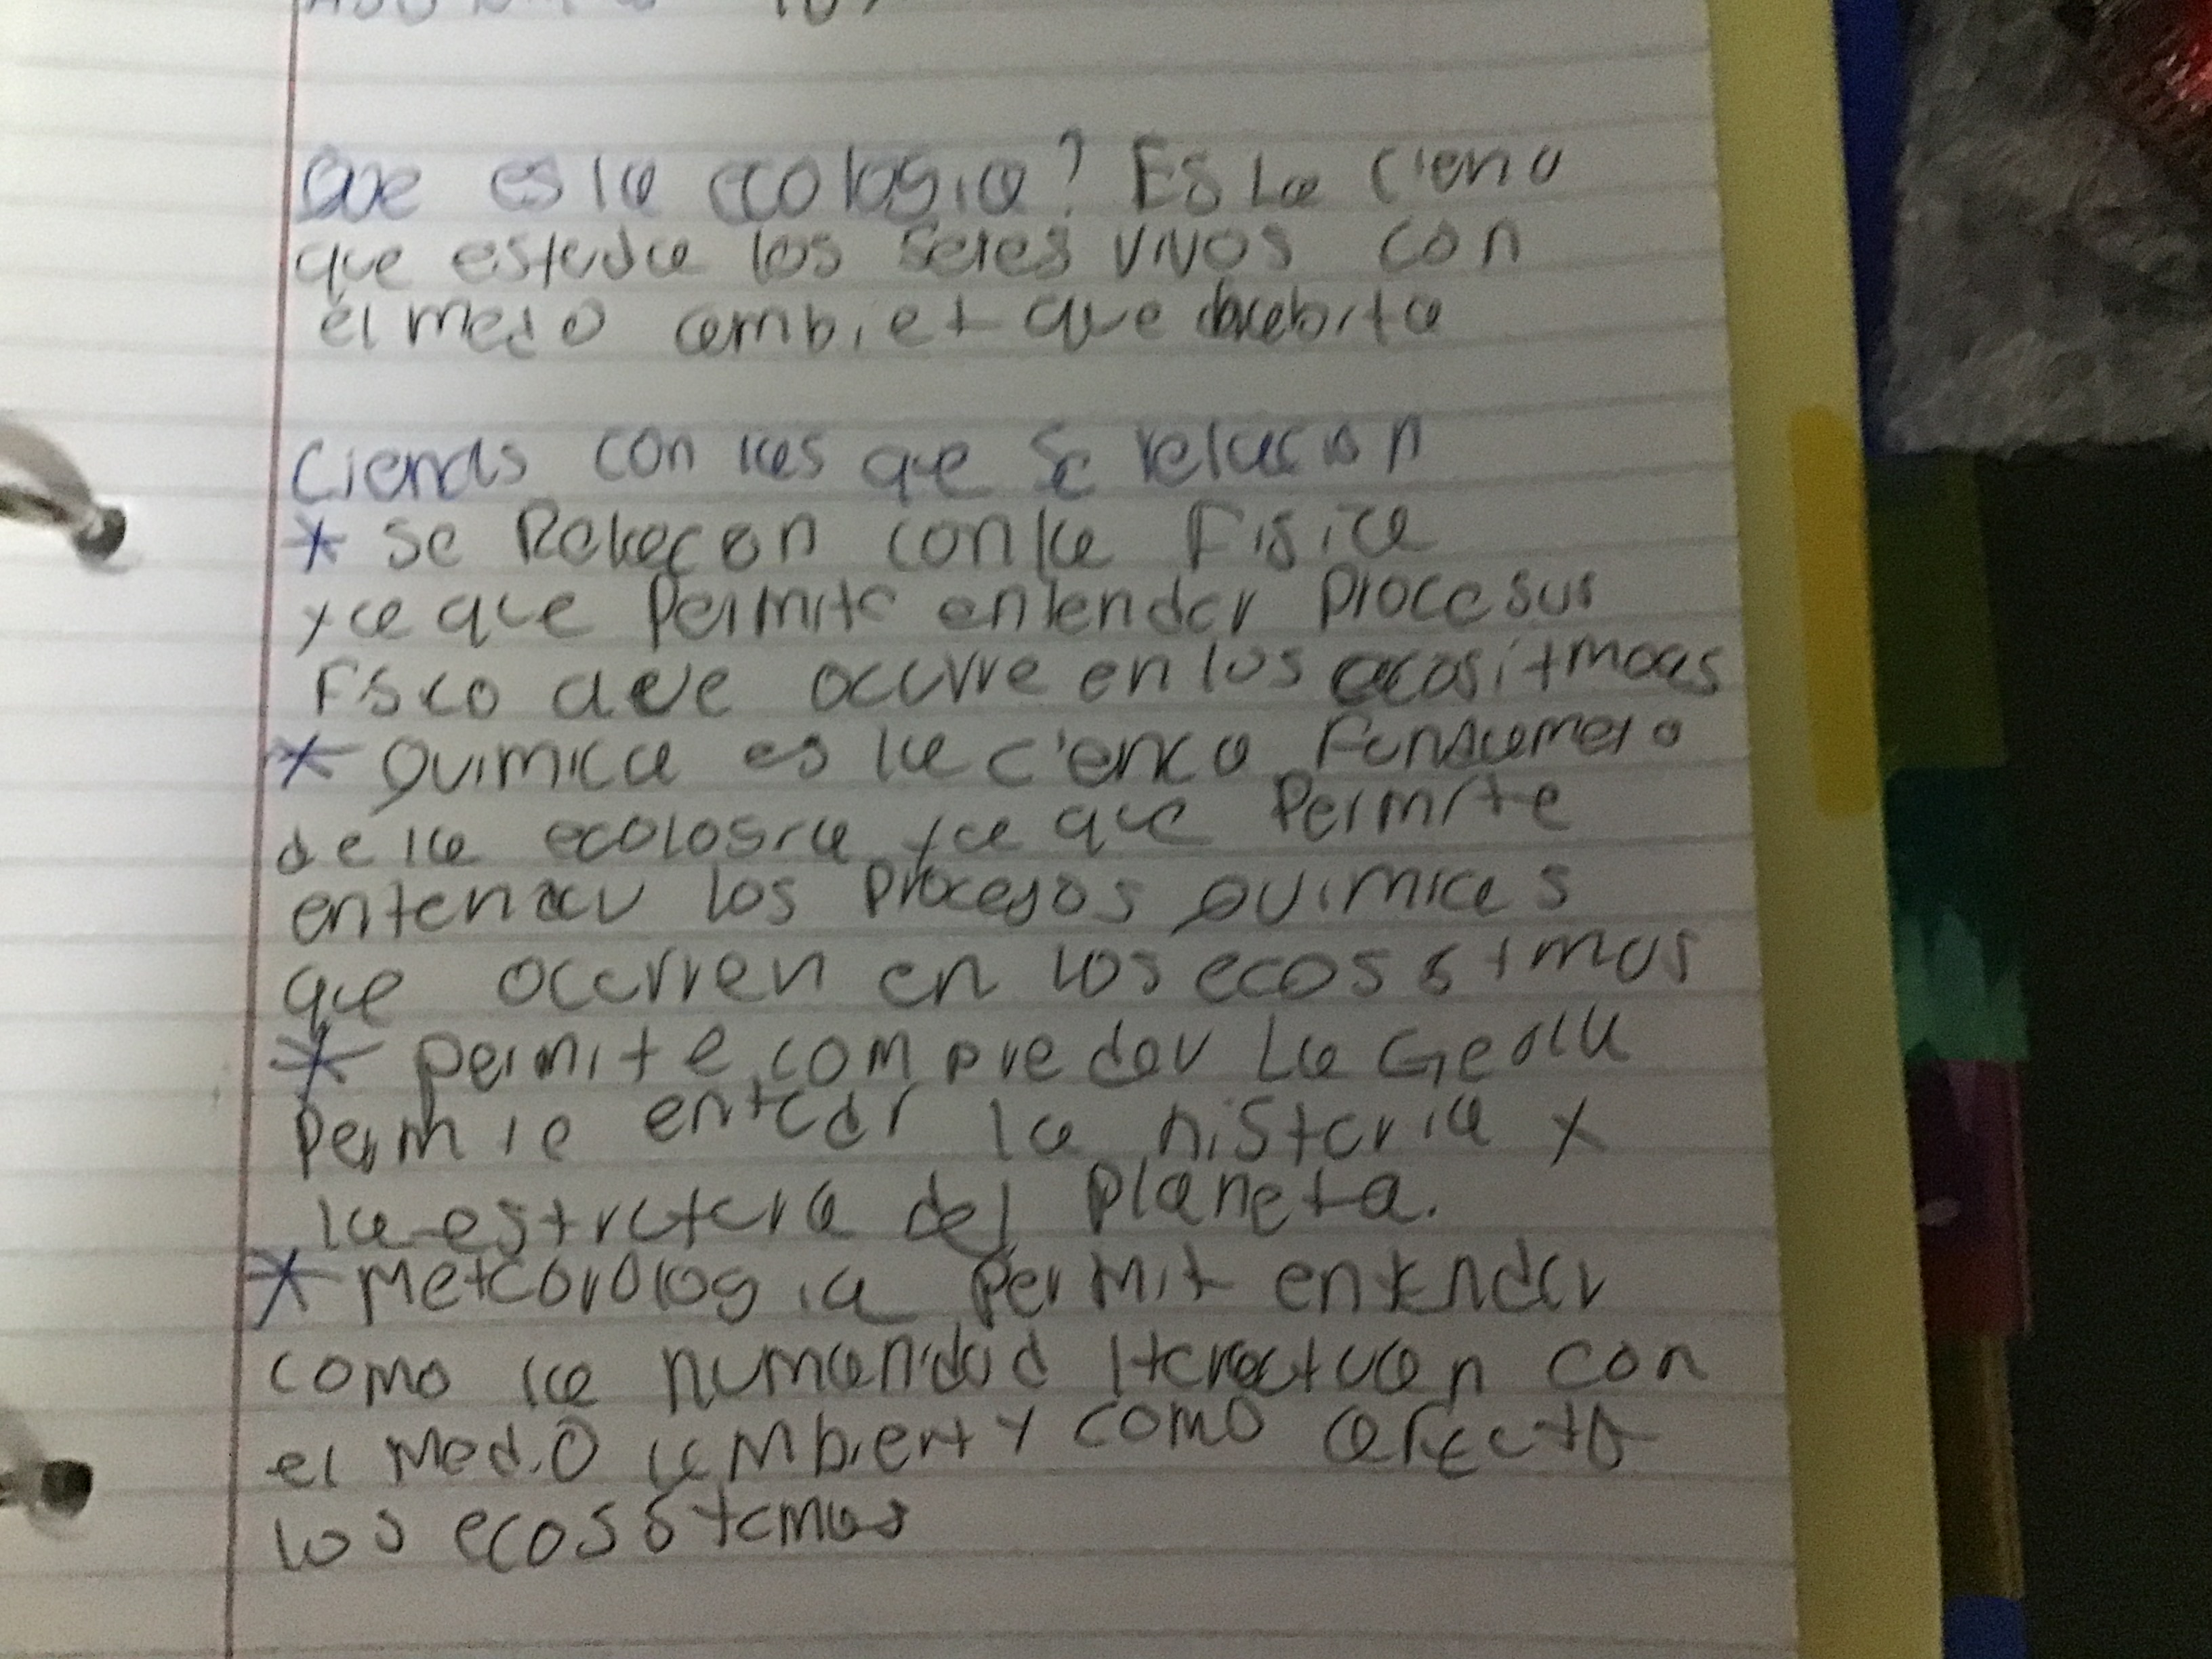 Que es la ecologia? Es La ciena
que estudia los seres vivos con
el medio ambiet que habita
Ciencias con las que se relacion
* se Relacon con la Fisica
ya que Permite entender Procesus
Fisco que occurre en los ecositmas
* Quimica es la cienca
de la ecologia ya que Permite
entender los Procesos Quimicas
que occurren en los ecossitmas
* permite compreder La
Permie enteder la historia y
la estructura del Planeta.
* Meteorologia Permit entender
como la humanidad Iteractuan con
el Medio ambient y como afecta
los ecosstemas